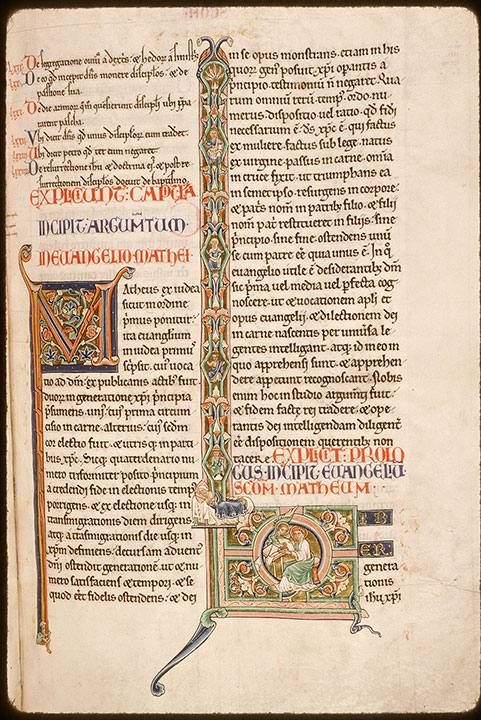 SCDM
De segregatione
De eo qd incepit dns monere discipłos
passione sua.
De die azimor
Vbi dicit dns qd unus discipłor eum tradet.
Vbi dicit petro qd ter eum negaret.
De resurrectione ihu & doctrina ei
discipłos docuit de baptismo.
EXPLICIUNT CAPITLA
INCIPIT ARGUMTUM
IN EVANGELIO MATHEI.
Matheus ex iudea
sicut in ordine
primus ponitur.
ita euanglium
in iudea primus
scripsit. cui uoca
tio ad dm ex publicanis actib; fuit.
duor in generatione xpi principia
psumens. unius cui prima circum
cisio in carne. alterius cui scdm
cor electio fuit. & utrisq; in patri
bus xpc. Sicq; quaternario nu
mero triformiter posito. principium
a credendi fide in electionis temp
porrigens. & ex electione usq; in
transmigrationis diem dirigens.
atq; a transmigrationis die usq; in
xpm definiens. decursam aduent
dni ostendit generatione. ut & nu
mero satisfaciens & tempori. & se
quod eet fidelis ostendens. & dei
in se opus monstrans. etiam in his
quor gen posuit. xpi opantis a
principio testimoniu n negaret. Qua
rum omniu reru temp. ordo. nu
merus. dispositio uel ratio. qd fidei
necessarium e. ds xpc e. qui factus
ex muliere. factus sub lege. natus
ex uirgine. passus in carne. omia
in cruce fixit. ut triumphans ea
in semetipso. resurgens in corpore.
& patris nom in patrib; filio. & filii
nom patri restitueret in filiis. sine
principio. sine fine. ostendens unu
se cum patre ee. quia unus e. In q
euangelio utile e desiderantib; dm
sic pma uel media uel pfecta cog
noscere. ut & uocationem apli &
opus euangelii. & dilectionem dei
in carne nascentis per umusa le
gentes intelligant. atq; id in eo in
quo apprehensi sunt. & apprehen
dere appetunt recognoscant. Nobis
enim hoc in studio argumti fuit.
& fidem facte rei tradere. & ope
rantis dei intelligendam diligent
ee dispositionem querentib; non
tacere. EXPLICIT PROLO
GUS. INCIPIT EVANGELIU
SCDM MATHEUM
LIB
ER
genera
tionis
ihu xpi